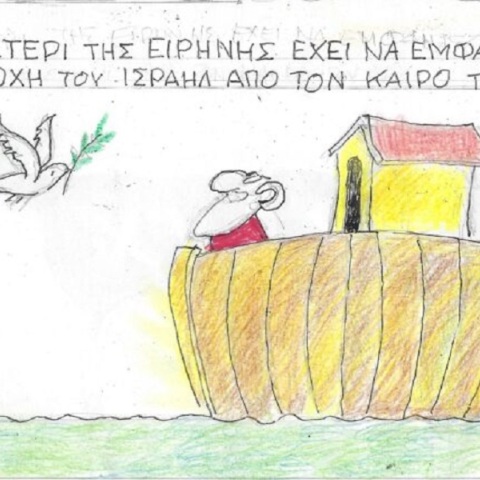 ΣΤΕΡΙ ΤΗΣ ΕΙΡΗΝΗΣ ΕΧΕΙ ΝΑ ΕΜΦΑ
ΟΧΗ ΤΟΥ ΙΣΡΑΗΛ ΑΠΟ ΤΟΝ ΚΑΙΡΟ Τ